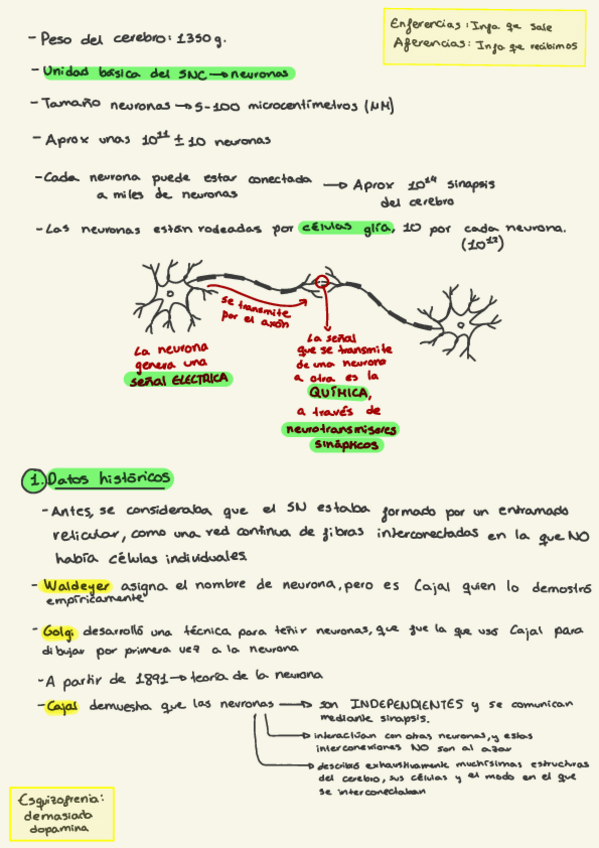 - Peso del cerebro: 1350 g.
Enferencias: Info que sale
Aferencias: Info que recibimos
- Unidad básica del SNC → neuronas
- Tamaño neuronas → 5-100 microcentímetros (µM)
- Aprox unas 10¹¹ ± 10 neuronas
- Cada neurona puede estar conectada
a miles de neuronas
→ Aprox 10¹⁴ sinapsis
del cerebro
- Las neuronas están rodeadas por células glía, 10 por cada neurona.
(10¹²)
se transmite
por el axón
La neurona
genera una
señal ELECTRICA
La señal
que se transmite
de una neurona
a otra es la
QUÍMICA,
a través de
neurotransmisores
sinápticos
1. Datos históricos
- Antes, se consideraba que el SN estaba formado por un entramado
reticular, como una red continua de fibras interconectadas en la que NO
había células individuales
- Waldeyer asigna el nombre de neurona, pero es Cajal quien lo demostró
empíricamente
- Golgi desarrolló una técnica para teñir neuronas, que fue la que usó Cajal para
dibujar por primera vez a la neurona
- A partir de 1891 → teoría de la neurona
- Cajal demuestra que las neuronas → son INDEPENDIENTES y se comunican
mediante sinapsis.
→ interactúan con otras neuronas, y estas
interconexiones NO son al azar
→ describió exhaustivamente muchísimas estructuras
del cerebro, sus células y el modo en el que
se interconectaban
Esquizofrenia:
demasiada
dopamina